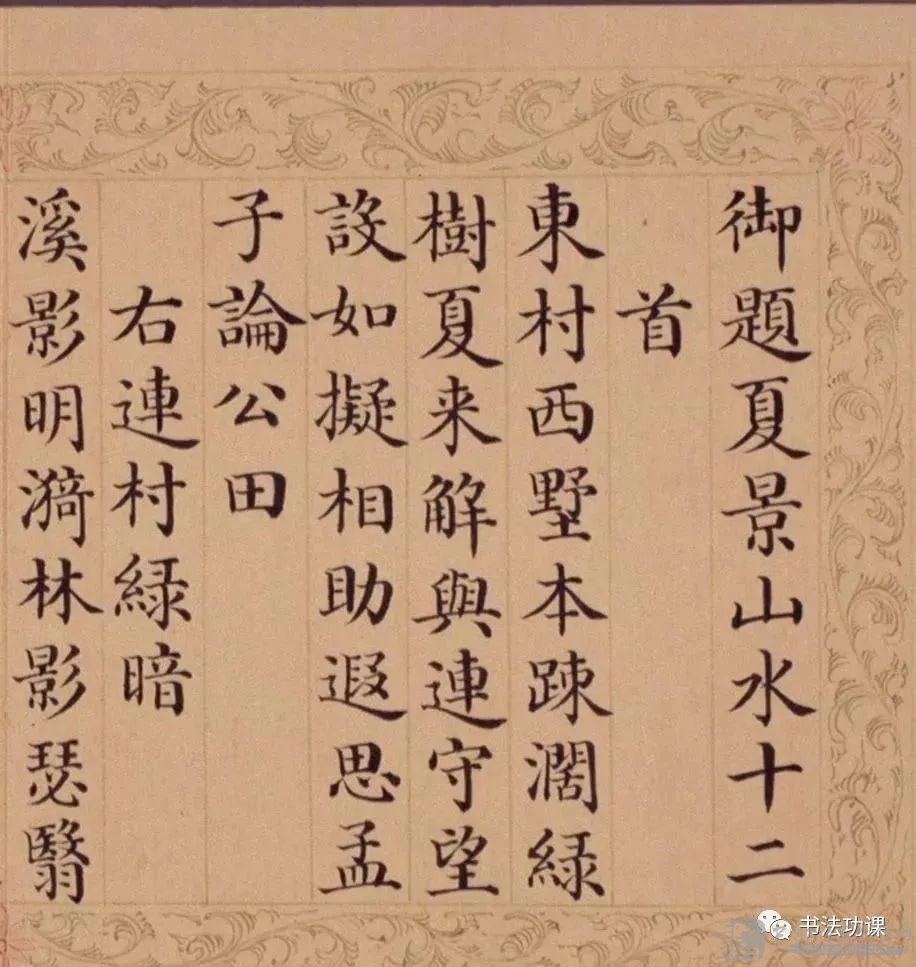 御題夏景山水十二
首
東村西墅本踈濶緑
樹夏来解與連守望
設如擬相助遐思孟
子論公田
右連村緑暗
溪影明漪林影瑟翳
书法功课